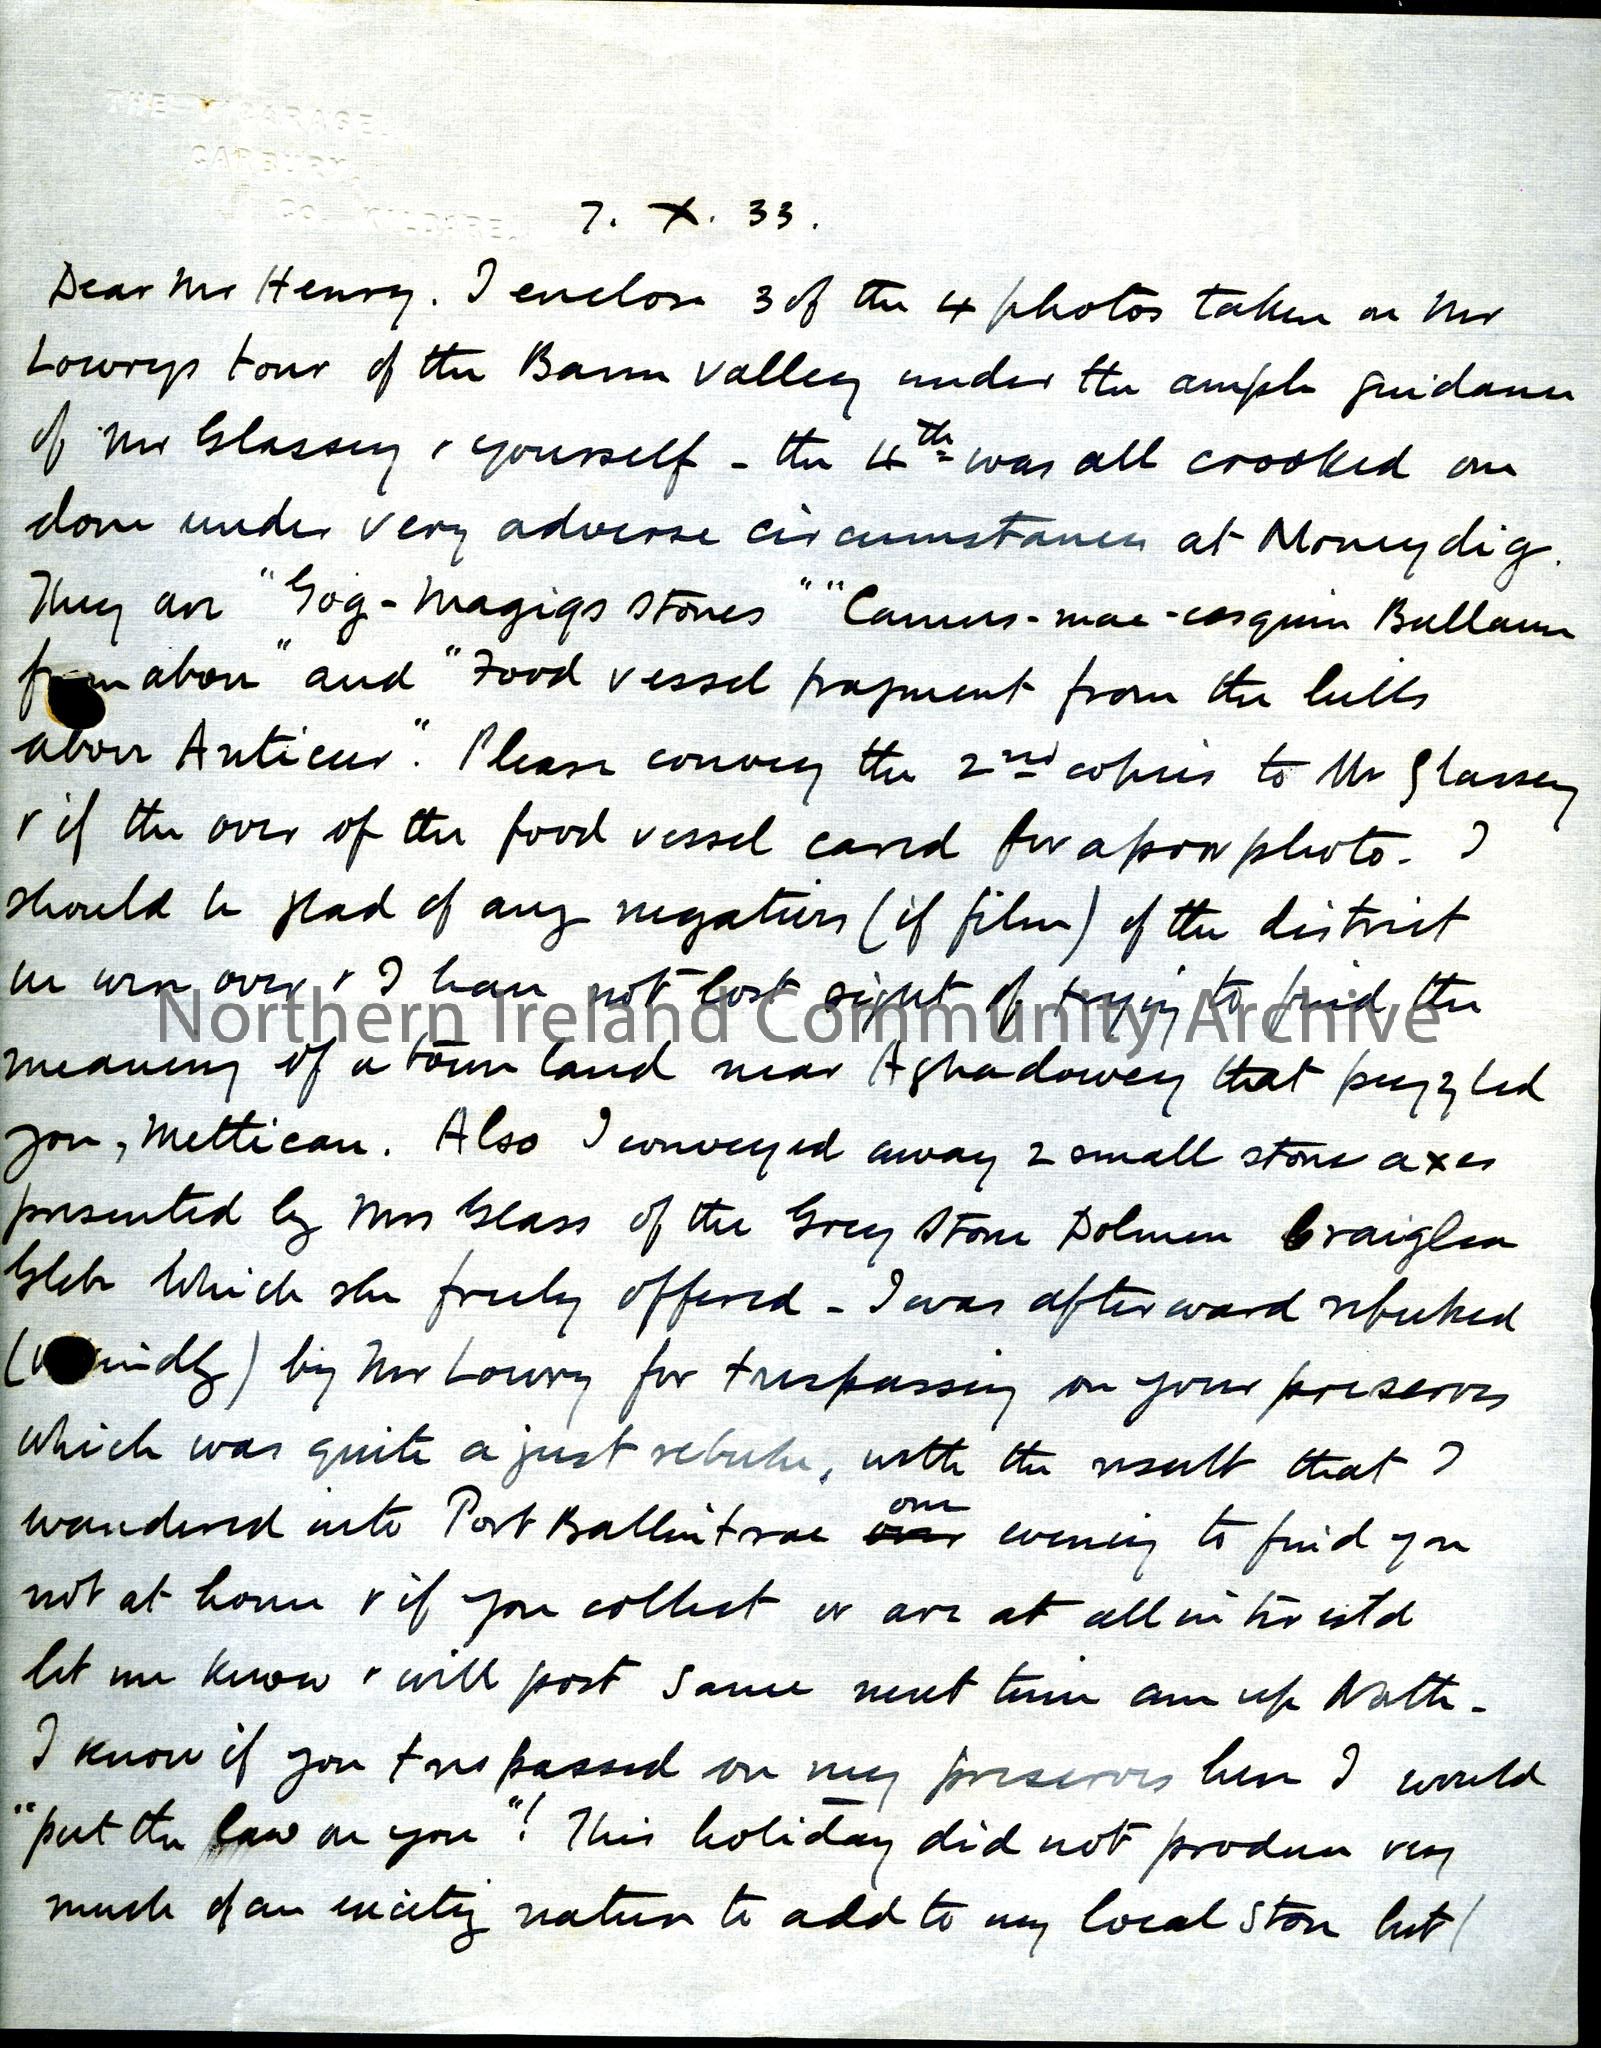 THE VICARAGE.
CARBURY,
CO. KILDARE.
7. X. 33.
Dear Mr Henry. I enclose 3 of the 4 photos taken on Mr
Lowrys tour of the Bann valley under the ample guidance
of Mr Glassey & yourself - the 4th was all crooked one
done under very adverse circumstances at Moneydig.
They are "Gog-Magigs stones" "Camus-mac-cosquin Bullaun
from above" and "Food vessel fragment from the hills
above Anticur". Please convey the 2nd copies to Mr Glassey
& if the owner of the food vessel cared for a poor photo. I
should be glad of any negatives (if film) of the district
we were over & I have not lost sight of trying to find the
meaning of a townland near Aghadowey that puzzled
you, Mettican. Also I conveyed away 2 small stone axes
presented by Mrs Glass of the Grey Stone Dolmen Craiglea
Glebe which she freely offered - I was afterward rebuked
( ) by Mr Lowry for trespassing on your preserves
which was quite a just rebuke, with the result that I
wandered into Port Ballintrae one evening to find you
not at home & if you collect or are at all interestd
let me know & will post same next time am up North -
I know if you trespassed on my preserves here I would
"put the law on you"! This holiday did not produce very
much of an exciting nature to add to my local store but /
Northern Ireland Community Archive